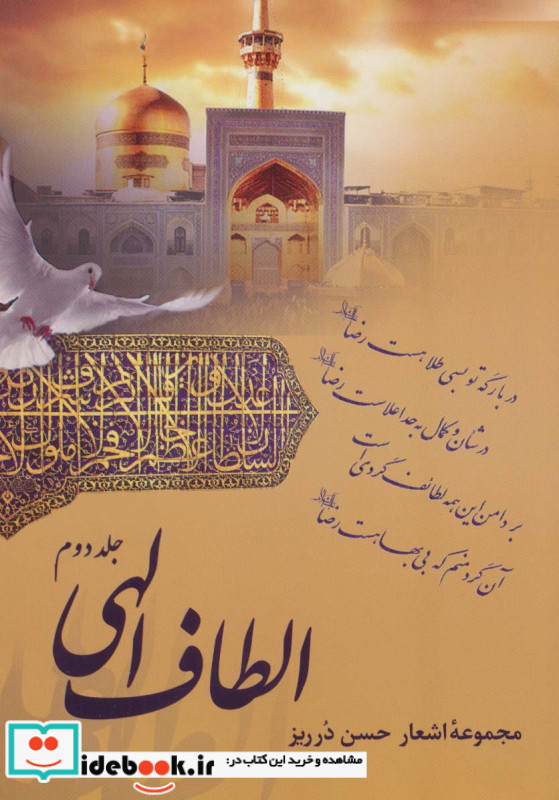 در بارگه تو بسی طلا هست رضا
در شأن و کمال به حد اعلاست رضا
بر دامن این همه لطائف گردی است
آن گرد منم که بی بها هست رضا
جلد دوم
الطاف الهی
مجموعهٔ اشعار حسن دُرریز
مشاهده و خرید این کتاب در:
idebook.ir